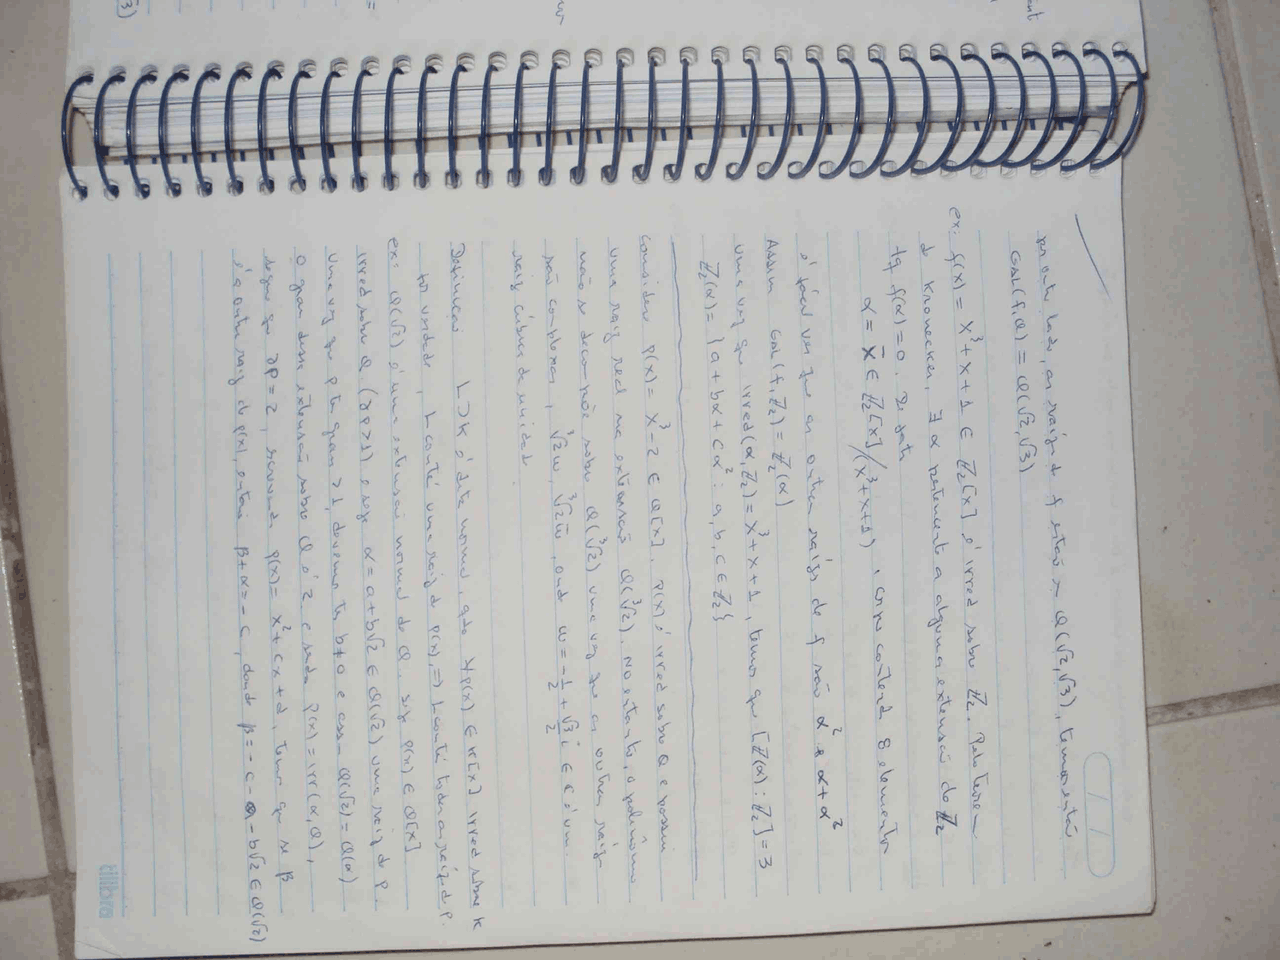 por outro lado, as raízes de f estão em Q(√2,√3), temos então
Gal(f,Q) = Q(√2,√3)
ex: f(x) = x³+x+1 ∈ Z₂[x] é irred sobre Z₂. Pelo teorema
de Kronecker, ∃ α pertencente a alguma extensão de Z₂
tq f(α)=0. De fato
α = x̄ ∈ Z₂[x]/(x³+x+1), corpo conterá 8 elementos
é fácil ver que as outras raízes de f são α² e α+α²
Assim Gal(f,Z₂) = Z₂(α)
uma vez que irred(α,Z₂) = x³+x+1, temos que [Z(α):Z₂]=3
Z₂(α) = {a+bα+cα² : a,b,c ∈ Z₂}
considere p(x) = x³-2 ∈ Q[x], p(x) é irred sobre Q e possui
uma raiz real na extensão Q(³√2). No entanto, o polinômio
não se decompõe sobre Q(³√2) uma vez que as outras raízes
são complexas, ³√2w, ³√2w̄, onde w = -1/2 + √3/2 i ∈ C é uma
raiz cúbica da unidade.
Definição L⊃K é dita normal, qdo ∀p(x) ∈ K[x] irred sobre K
L contém uma raiz de p(x), ⇒ L contém todas as raízes de p.
ex: Q(√2) é uma extensão normal de Q. seja p(x) ∈ Q[x]
irred sobre Q (∂p>1) e seja α = a+b√2 ∈ Q(√2) uma raiz de p.
uma vez que p tem grau >1, devemos ter b≠0 e assim Q(√2) = Q(α)
O grau dessa extensão sobre Q é 2 e sendo p(x) = irr(α,Q),
segue que ∂p=2, escrevendo p(x) = x²+cx+d, temos que se β
é a outra raiz de p(x), então β+α=-c, donde β=-c-a-b√2 ∈ Q(√2)
tilibra